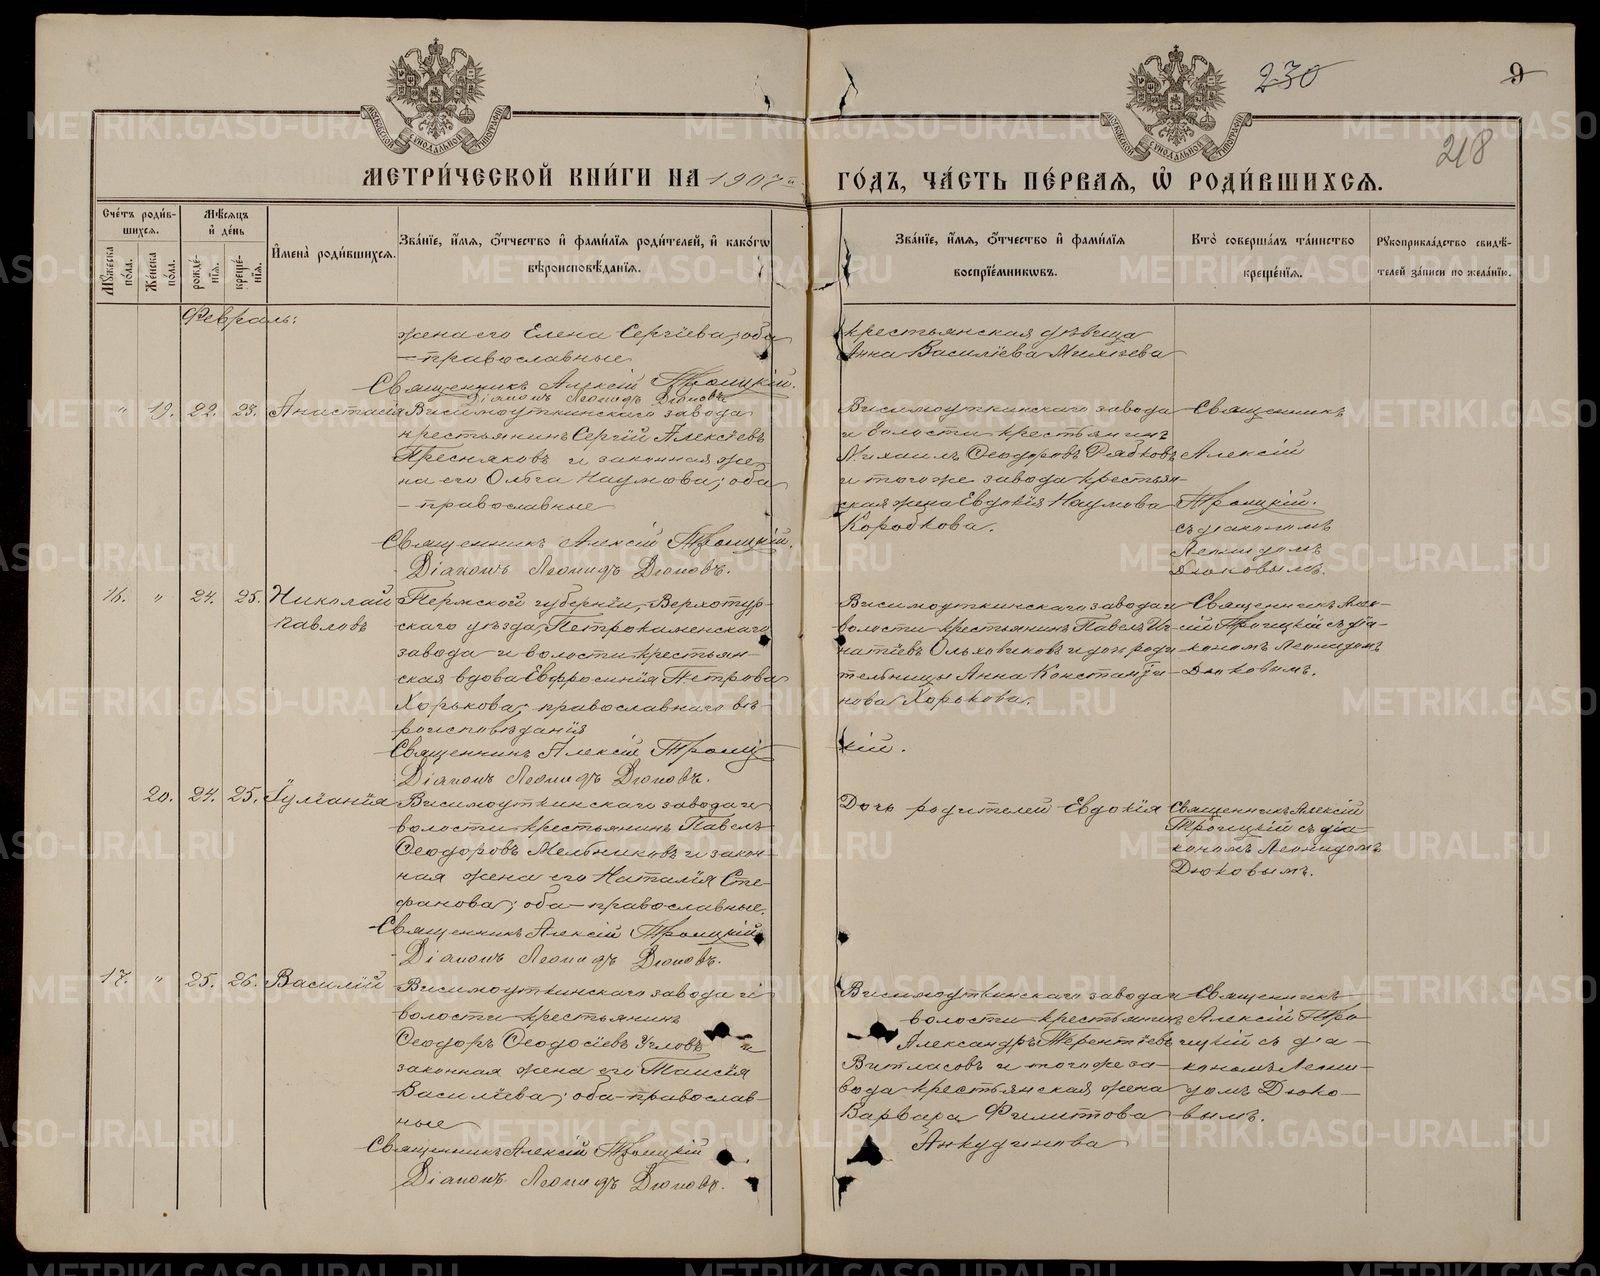 230
9
218
МЕТРИ́ЧЕСКОЙ КНИ́ГИ НА 1907 ГО́ДЪ, ЧА́СТЬ ПЕ́РВАЯ, Ѡ҆ РОДИ́ВШИХСѦ.
Сче́тъ роди́вшихсѧ.
Мꙋ́жеска по́ла.
Же́нска по́ла.
Мѣ́сѧцъ и҆ де́нь
рожде́нїѧ.
креще́нїѧ.
И҆мена̀ роди́вшихсѧ.
Зва́нїе, и҆́мѧ, ѻ҆́тчество и҆ фами́лїѧ роди́телей, и҆ како́гѡ вѣроисповѣ́данїѧ.
Зва́нїе, и҆́мѧ, ѻ҆́тчество и҆ фами́лїѧ воспрїе́мникѡвъ.
Кто̀ соверша́лъ та́инство креще́нїѧ.
Рꙋкоприкла́дство свидѣ́телей за́писи по жела́нїю.
Февраль:
жена его Елена Сергіева; оба
православные
Священникъ Алексій Троицкій.
Діаконъ Леонидъ Дюковъ
крестьянская дѣвица
Анна Василіева Михнева
" 19. 22. 25. Анастасія
Висимоуткинскаго завода
крестьянинъ Сергій Алексіевъ
Пресняковъ и законная же-
на его Ольга Наумова; оба
православные
Священникъ Алексій Троицкій.
Діаконъ Леонидъ Дюковъ.
Висимоуткинскаго завода
и волости крестьянинъ
Михаилъ Ѳеодоровъ Рябковъ
и того же завода крестьян-
ская жена Евдокія Наумова
Коробкова.
Священникъ
Алексій
Троицкій.
съ діакономъ
Леонидомъ
Дюковымъ.
16. " 24. 25. Николай
Павловъ
Пермской губерніи, Верхотур-
скаго уѣзда, Петрокаменскаго
завода и волости крестьян-
ская вдова Евфросинія Петрова
Хорькова; православнаго вѣ-
роисповѣданія
Священникъ Алексій Троиц
кій.
Діаконъ Леонидъ Дюковъ.
Висимоуткинскаго завода и
волости крестьянинъ Павелъ Иг-
натіевъ Ольховиковъ и дочь роди
тельницы Анна Константи-
нова Хорькова.
Священникъ Алек-
сій Троицкій съ діа-
кономъ Леонидомъ
Дюковымъ.
20. 24. 25. Іуліанія
Висимоуткинскаго завода и
волости крестьянинъ Павелъ
Ѳеодоровъ Мельниковъ и закон-
ная жена его Наталія Сте-
фанова; оба православные.
Священникъ Алексій Троицкій
Діаконъ Леонидъ Дюковъ.
Дочь родителей Евдокія
Священникъ Алексій
Троицкій съ діа-
кономъ Леонидомъ
Дюковымъ.
17. " 25. 26. Василій
Висимоуткинскаго завода и
волости крестьянинъ
Ѳеодоръ Ѳеодосіевъ Угловъ и
законная жена его Таисія
Василіева; оба православ-
ные
Священникъ Алексій Троицкій
Діаконъ Леонидъ Дюковъ.
Висимоуткинскаго завода и
волости крестьянинъ
Александръ Терентіевъ
Витласовъ и того же за-
вода крестьянская жена
Варвара Филиппова
Анкудинова
Священникъ
Алексій Тро
ицкій съ діа-
кономъ Леони-
домъ Дюко-
вымъ.
METRIKI.GASO-URAL.RU